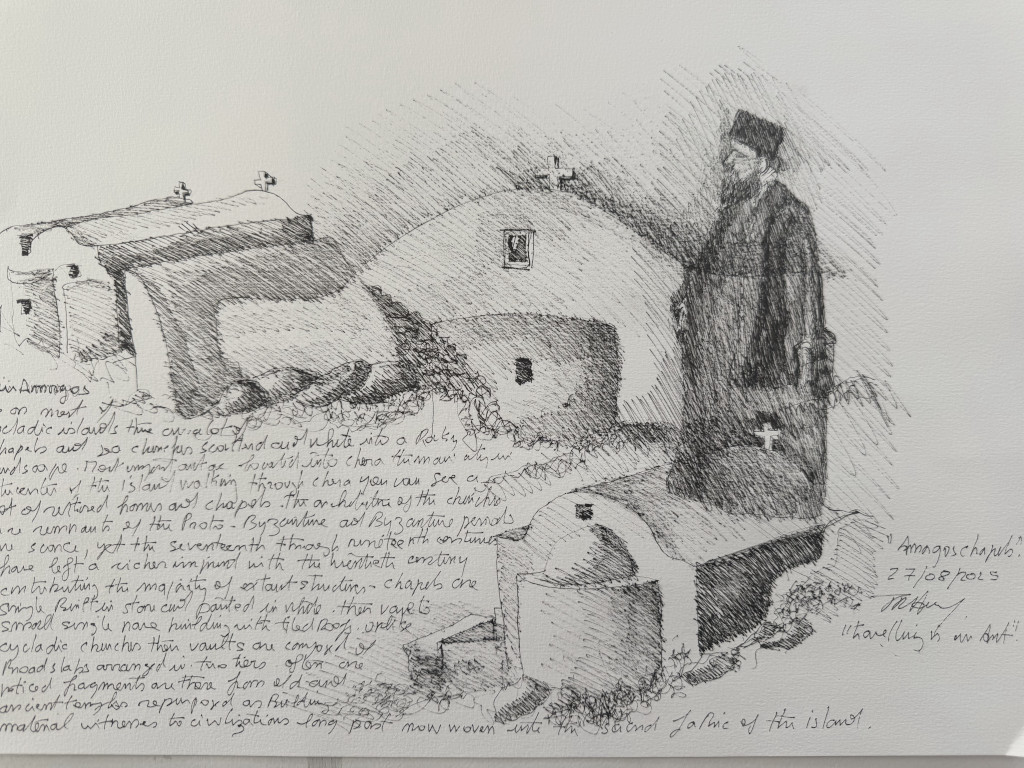 in Amorgos
on most of
cladic islands there are a lot of
chapels and so churches scattered and white into a Rocky
landscape. Most important are located into chora the main city in
the center of the island walking through chora you can see a
lot of retired homes and chapels. the architecture of the churches
are remnants of the Proto-Byzantine and Byzantine periods
are scarce, yet the seventeenth through nineteenth centuries
have left a richer imprint with the twentieth century
contributing the majority of extant structures. chapels are
simple Built in stone and painted in white. their vaults
small single nave building with tiled Roof. unlike
cycladic churches their vaults are composed of
Broad slabs arranged in two tiers often are
noticed fragments are there from old and
ancient temples repurposed as Building
material witnesses to civilizations long past now woven into the sacred fabric of the island.
"Amorgos chapels".
27/08/2025
"travelling is in Art".